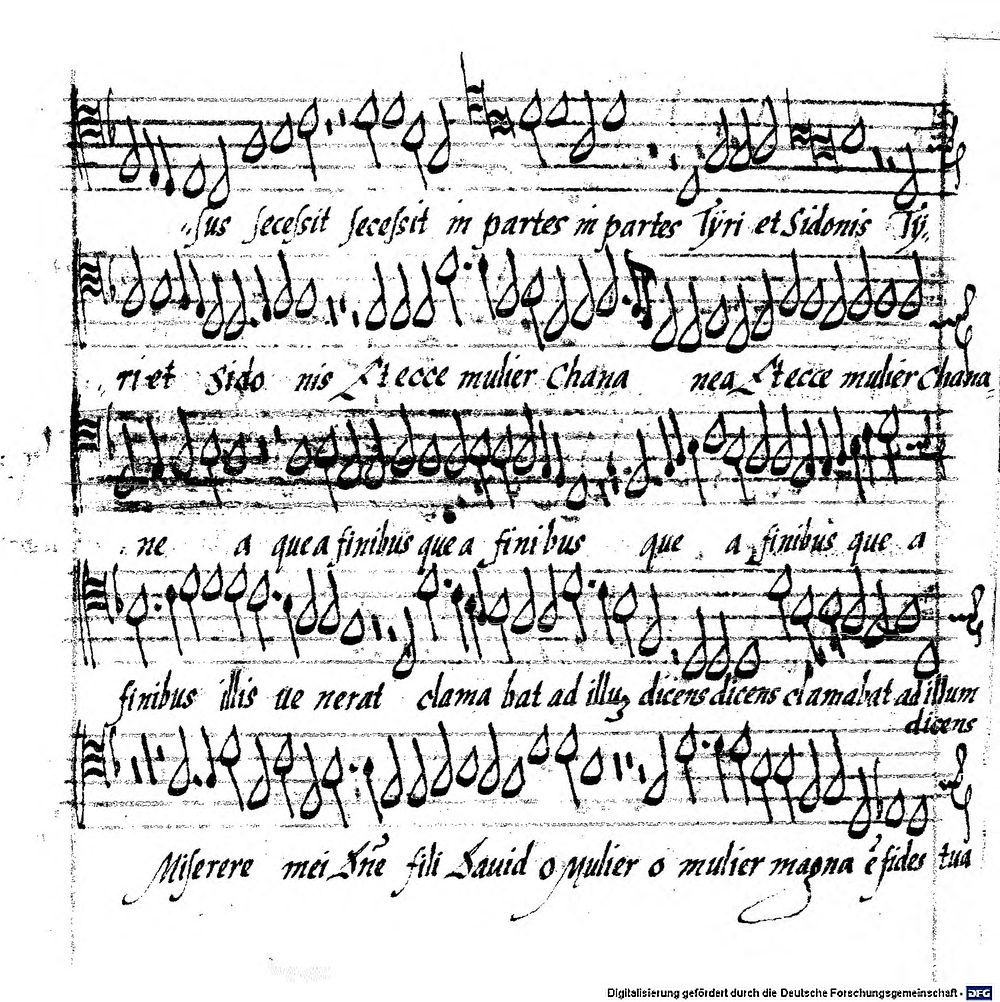 sus secessit secessit in partes in partes Tÿri et Sidonis Tÿ,
ri et Sido nis Et ecce mulier Chana nea Et ecce mulier Chana
ne a que a finibus que a finibus que a finibus que a
finibus illis ue nerat clama bat ad illuʒ dicens dicens clamabat ad illum
dicens
Miserere mei Dñe fili Dauid o Mulier o mulier magna ẽ fides tua
Digitalisierung gefördert durch die Deutsche Forschungsgemeinschaft - DFG